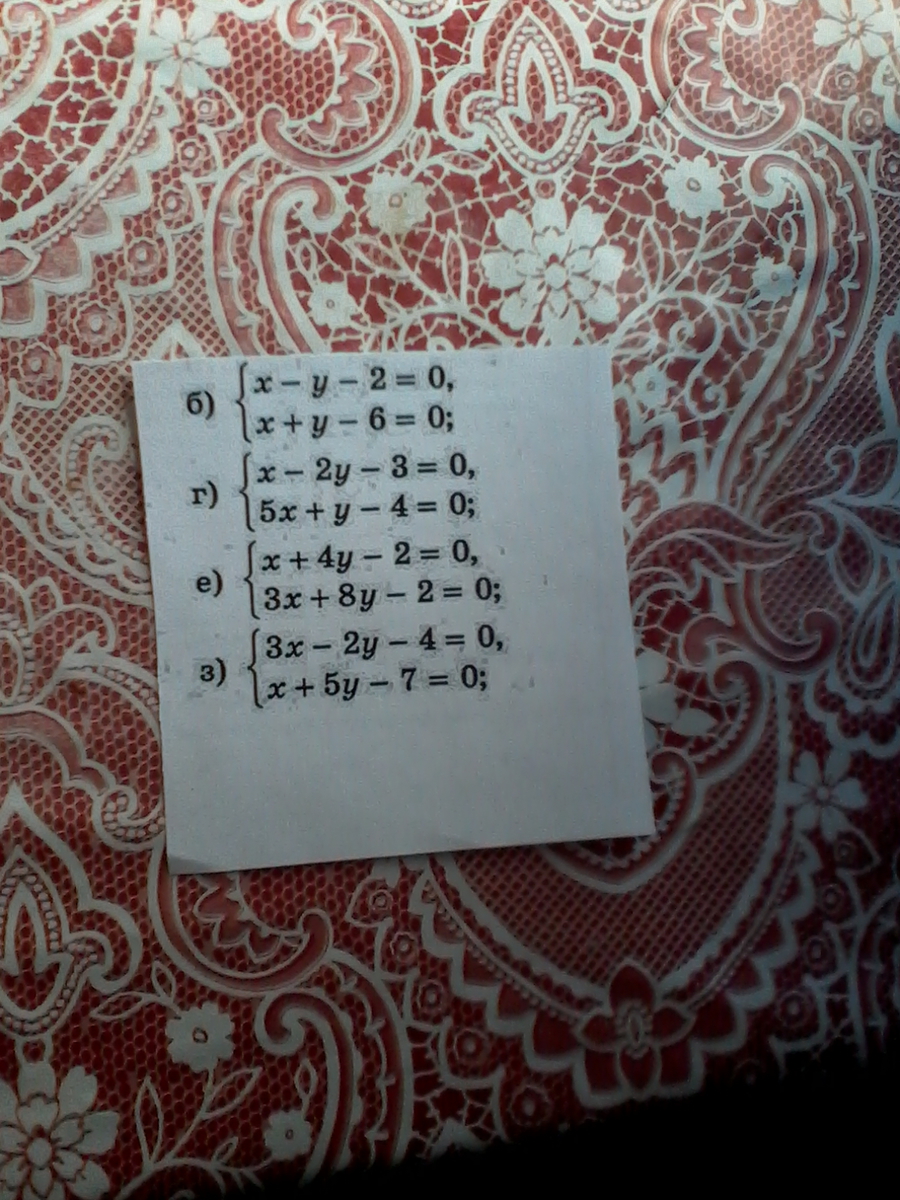 б) { x − y − 2 = 0,
x + y − 6 = 0;
г) { x − 2y − 3 = 0,
5x + y − 4 = 0;
е) { x + 4y − 2 = 0,
3x + 8y − 2 = 0;
з) { 3x − 2y − 4 = 0,
x + 5y − 7 = 0;